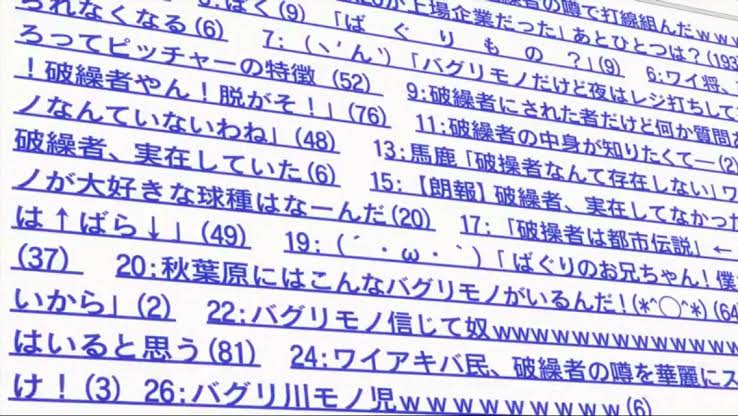 られなくなる(6) 6:ばく(9) 「 上場企業だった」あとひとつは?(193)
ろってピッチャーの特徴 (52) 7:(ヽ'ん')「バグリモノだけど夜はレジ打ちして 6:ワイ将、
！破繰者やん！脱がそ！」(76) 9:破繰者にされた者だけど何か質問
ノなんていないわね」(48) 11:破繰者の中身が知りたくて―(2)
破繰者、実在していた(6) 13:馬鹿「破操者なんて存在しない」
ノが大好きな球種はなーんだ(20) 15:【朗報】破繰者、実在してなかった
は↑ばら↓」(49) 17:「破操者は都市伝説」←
(37) 19:(´・ω・`)「ばぐりのお兄ちゃん！僕
20:秋葉原にはこんなバグリモノがいるんだ！(*^◯^*)(64)
いから」(2) 22:バグリモノ信じて奴wwwwwwwwwwwwwww
はいると思う(81) 24:ワイアキバ民、破繰者の噂を華麗にス
け！(3) 26:バグリ川モノ児ｗｗｗｗｗｗｗｗｗ(6)